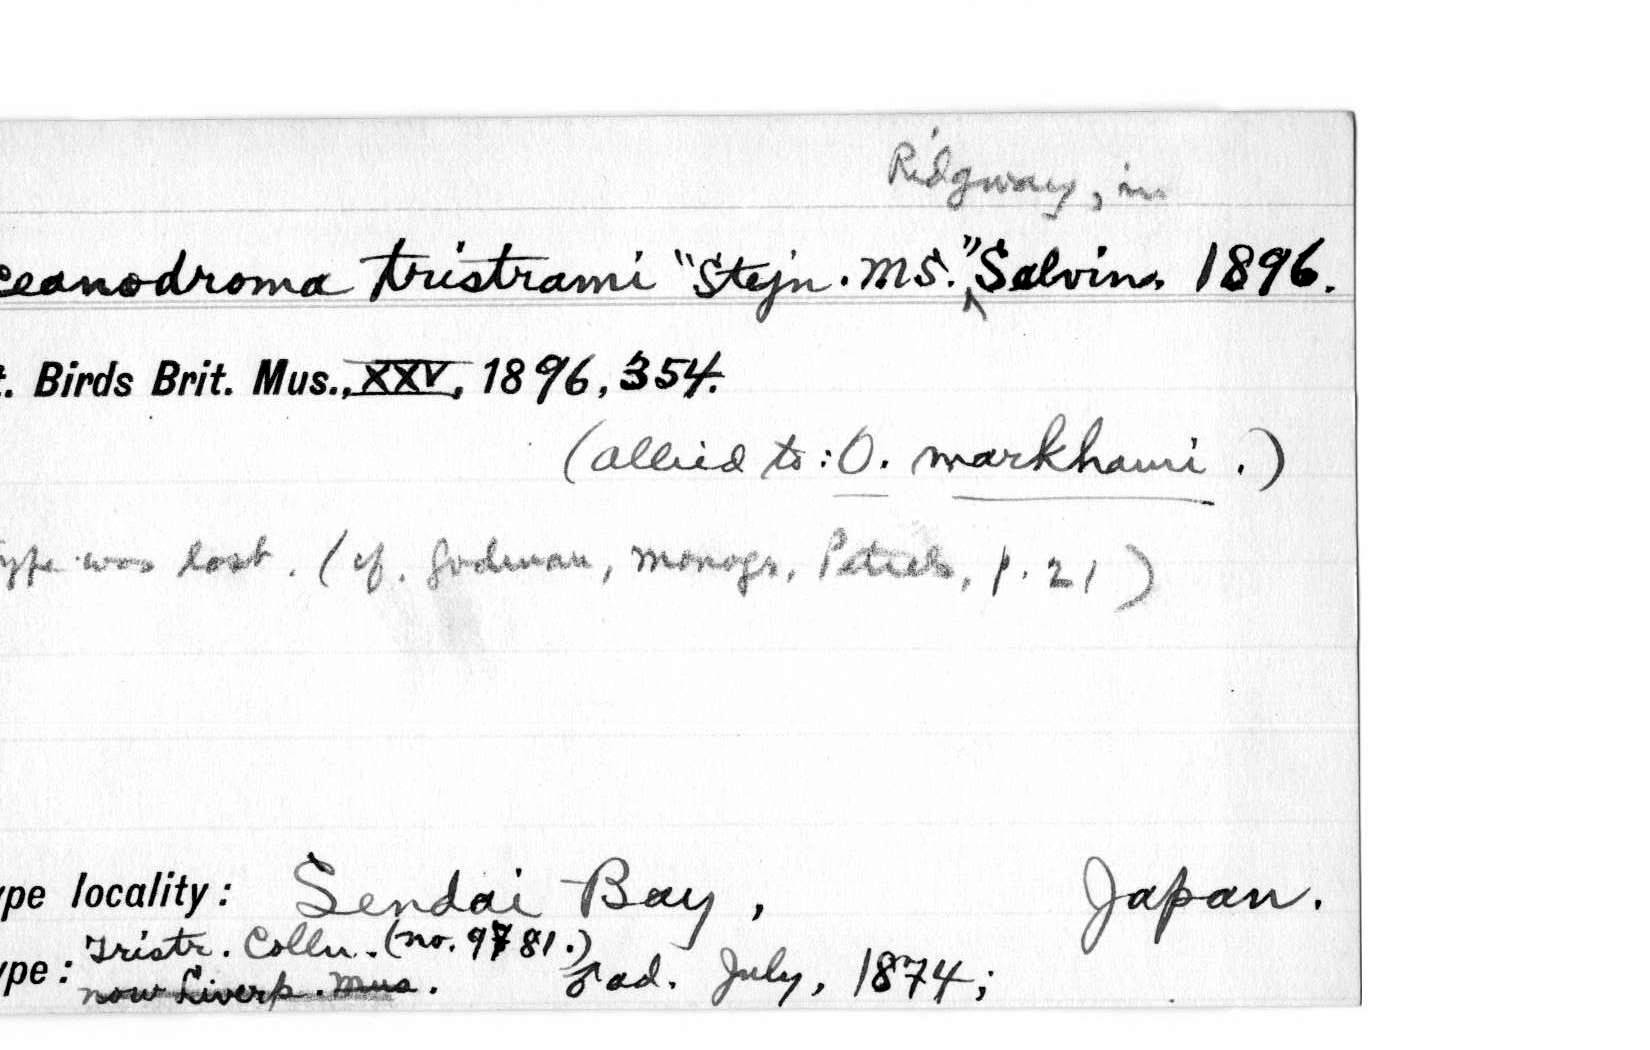 Ridgway, in
ceanodroma tristrami "Stejn. MS." Salvin. 1896.
t. Birds Brit. Mus., XXV, 1896, 354.
(allied to: O. markhami.)
ype was lost. (cf. Godman, Monogr. Petrels, p. 21)
ype locality: Sendai Bay, Japan.
Tristr. Colln. (no. 9781.)
ype: now Liverp. Mus. ♂ ad. July, 1874;